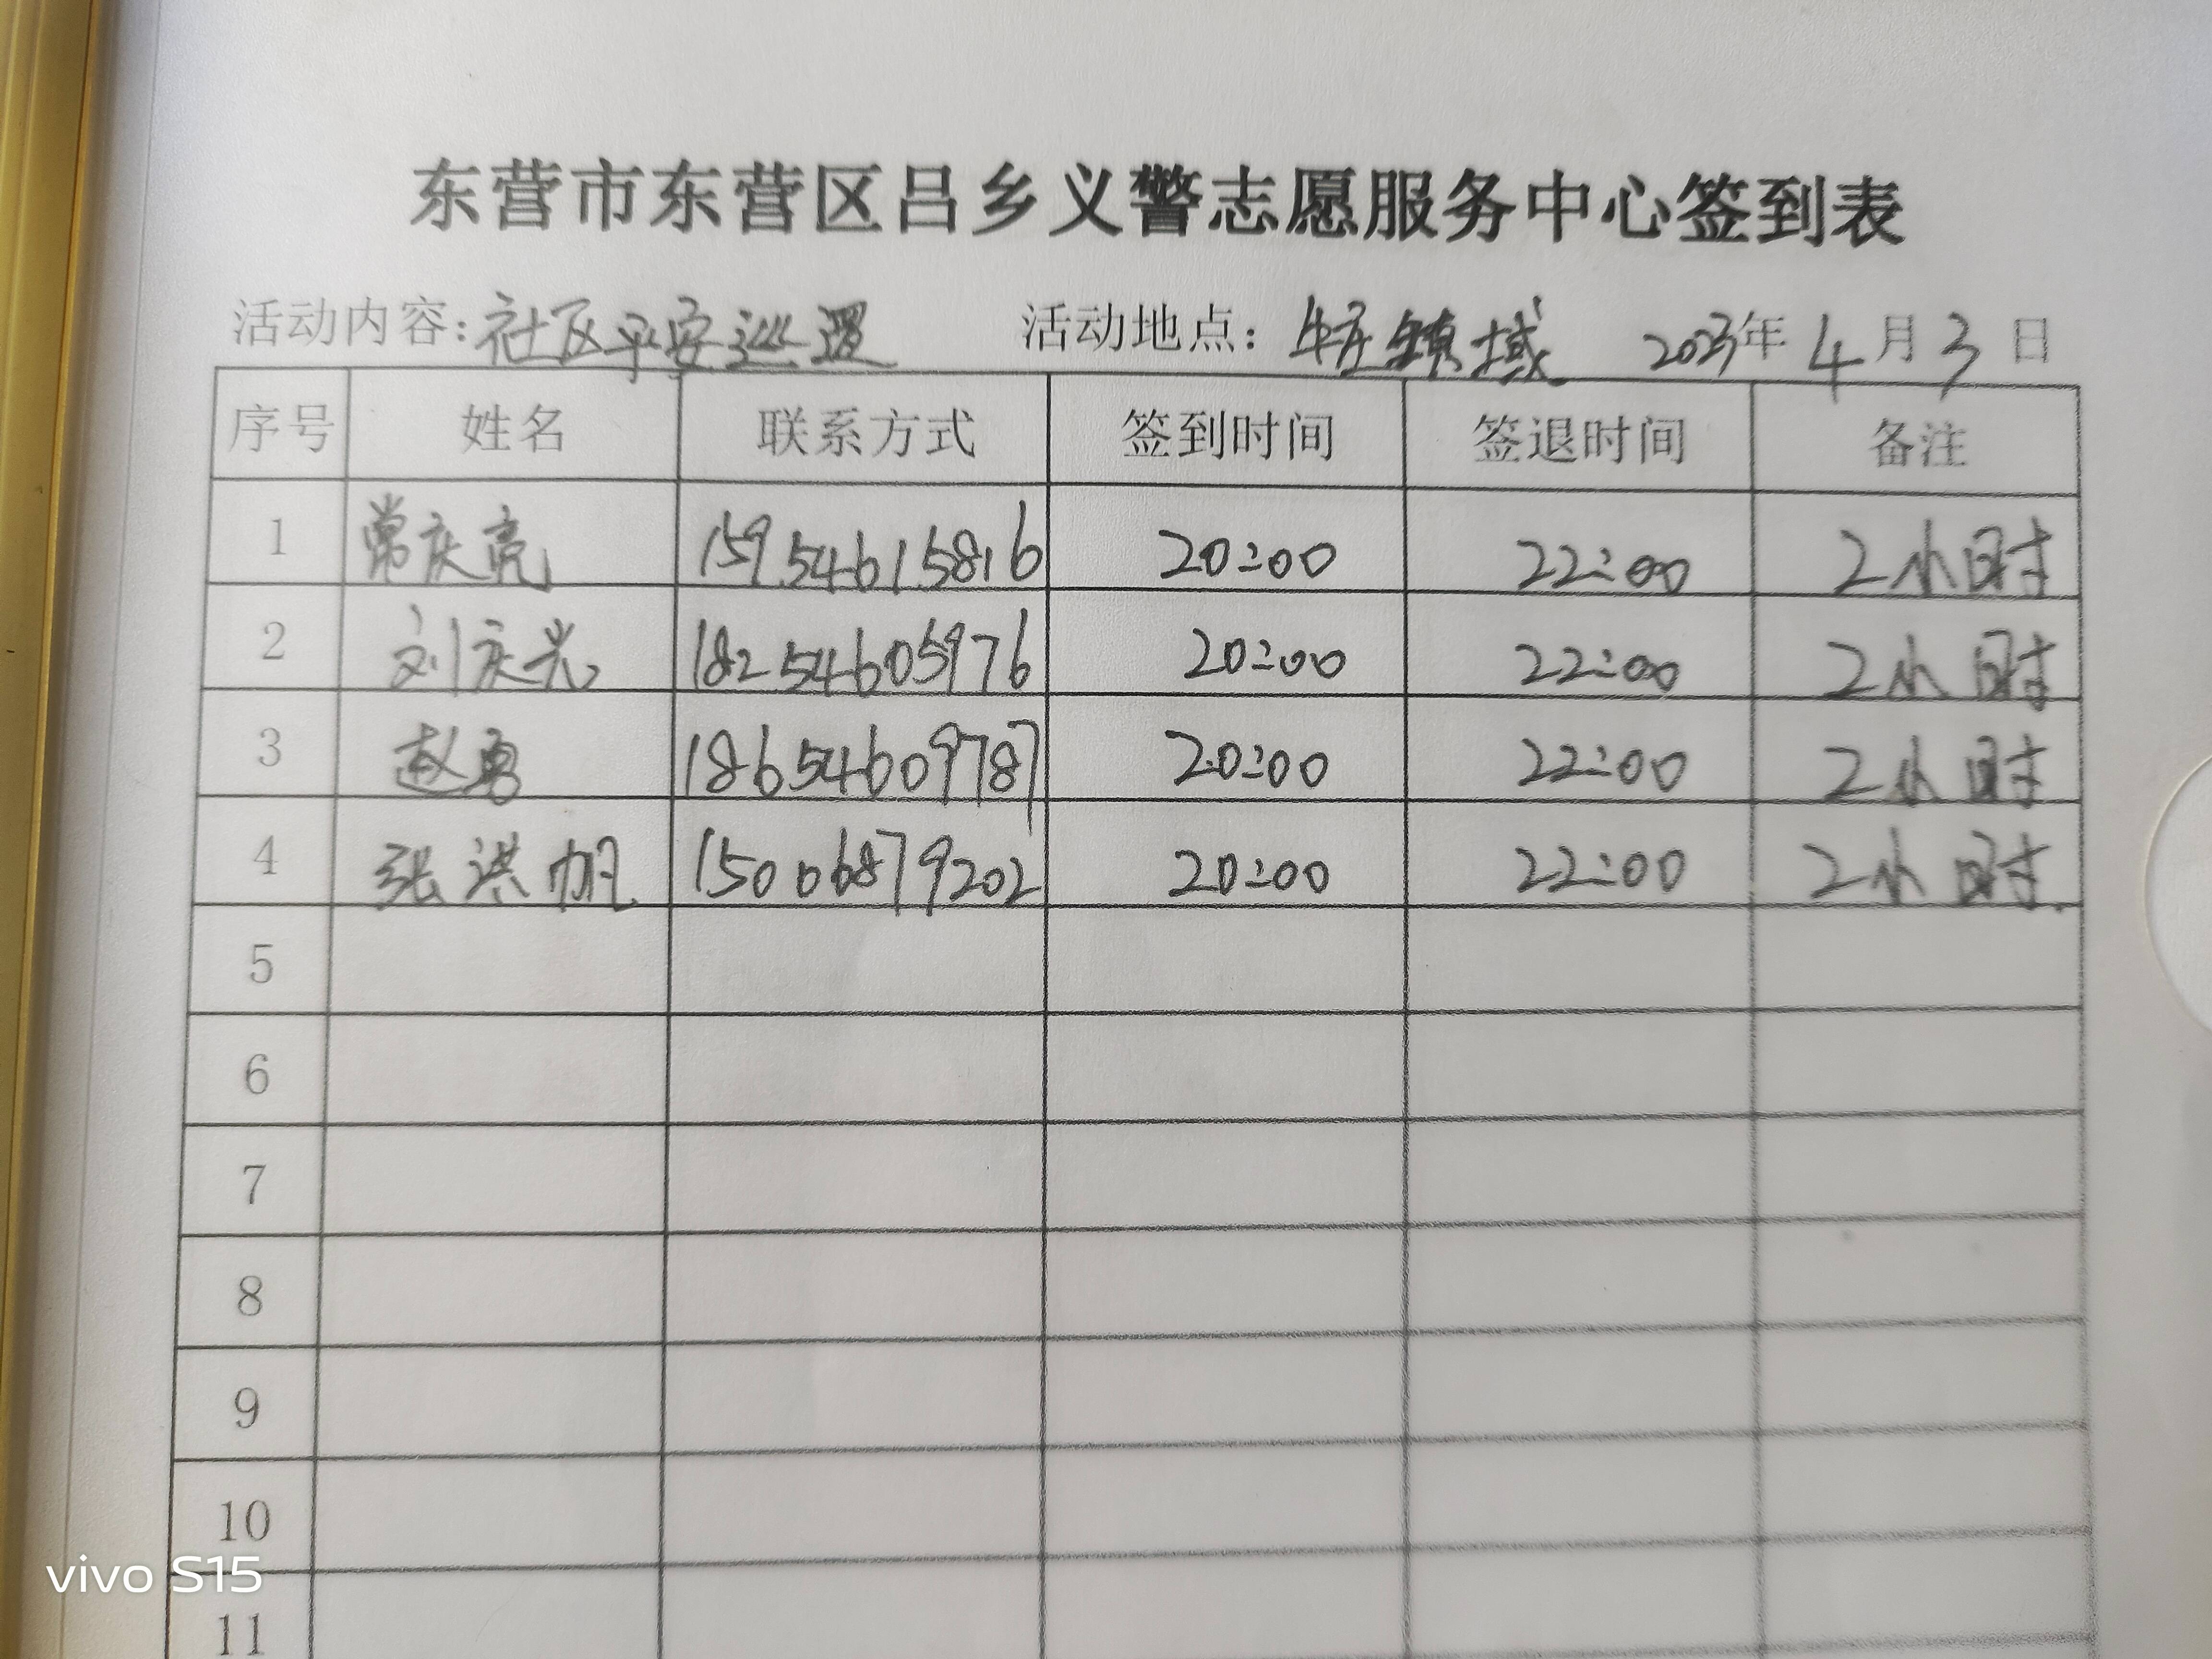 东营市东营区吕乡义警志愿服务中心签到表
活动内容:社区平安巡逻 活动地点:牛庄镇域 2023年4月3日
序号 姓名 联系方式 签到时间 签退时间 备注
1 常庆亮 15954615816 20:00 22:00 2小时
2 刘庆光 18254605976 20:00 22:00 2小时
3 赵勇 18654609787 20:00 22:00 2小时
4 张洪帆 15006879202 20:00 22:00 2小时.
5
6
7
8
9
10
11
vivo S15